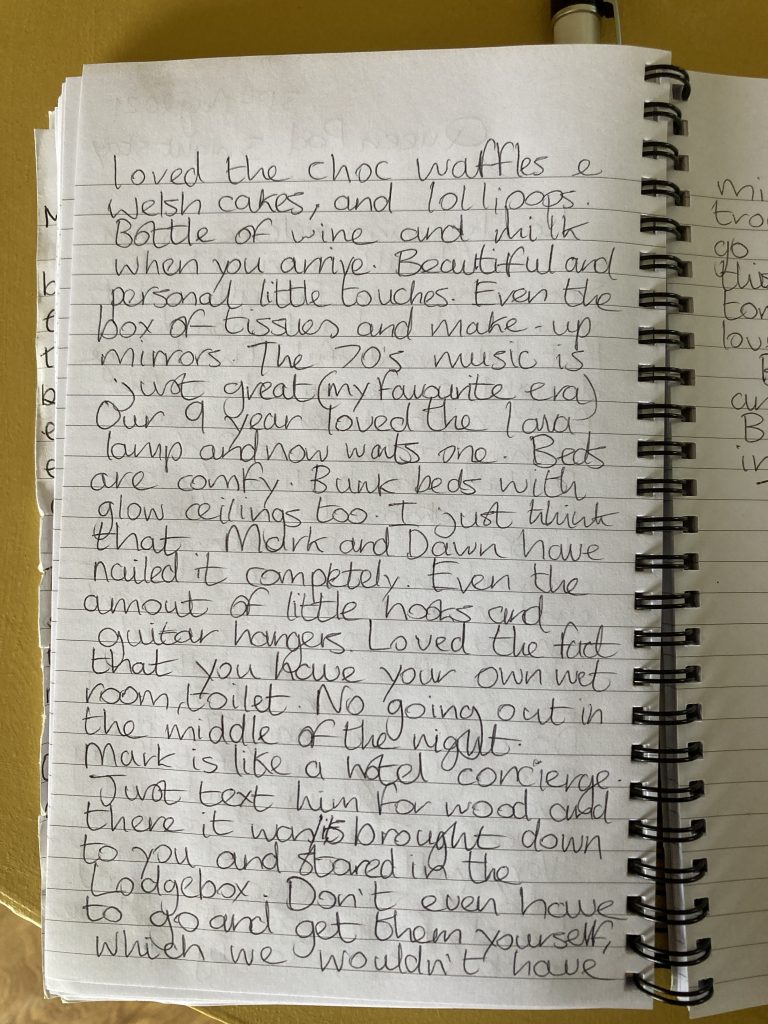 loved the choc waffles e
welsh cakes, and lollipops.
Bottle of wine and milk
when you arrive. Beautiful and
personal little touches. Even the
box of tissues and make-up
mirrors. The 70's music is
just great (my favourite era)
Our 9 year loved the lava
lamp and now wants one. Beds
are comfy. Bunk beds with
glow ceilings too. I just think
that Mark and Dawn have
nailed it completely. Even the
amout of little hooks and
guitar hangers. Loved the fact
that you have your own wet
room, toilet. No going out in
the middle of the night.
Mark is like a hotel concierge.
Just text him for wood and
there it was brought down
to you and stored in the
Lodgebox. Don't even have
to go and get them yourself,
which we wouldn't have
mi
go
lou
B